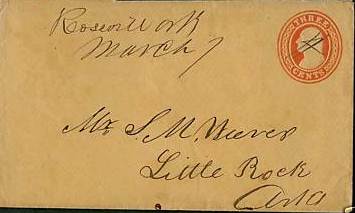 Roseville Ark
March 7
THREE
CENTS
Mr. S. M. Weaver
Little Rock
Arks